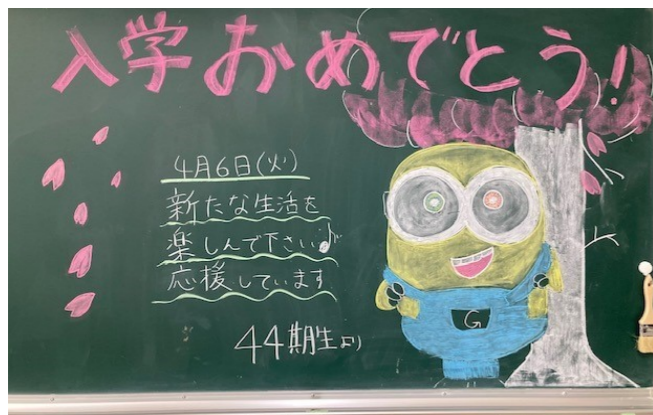 入学おめでとう!
4月6日(火)
新たな生活を
楽しんで下さい♪
応援しています
44期生より
G